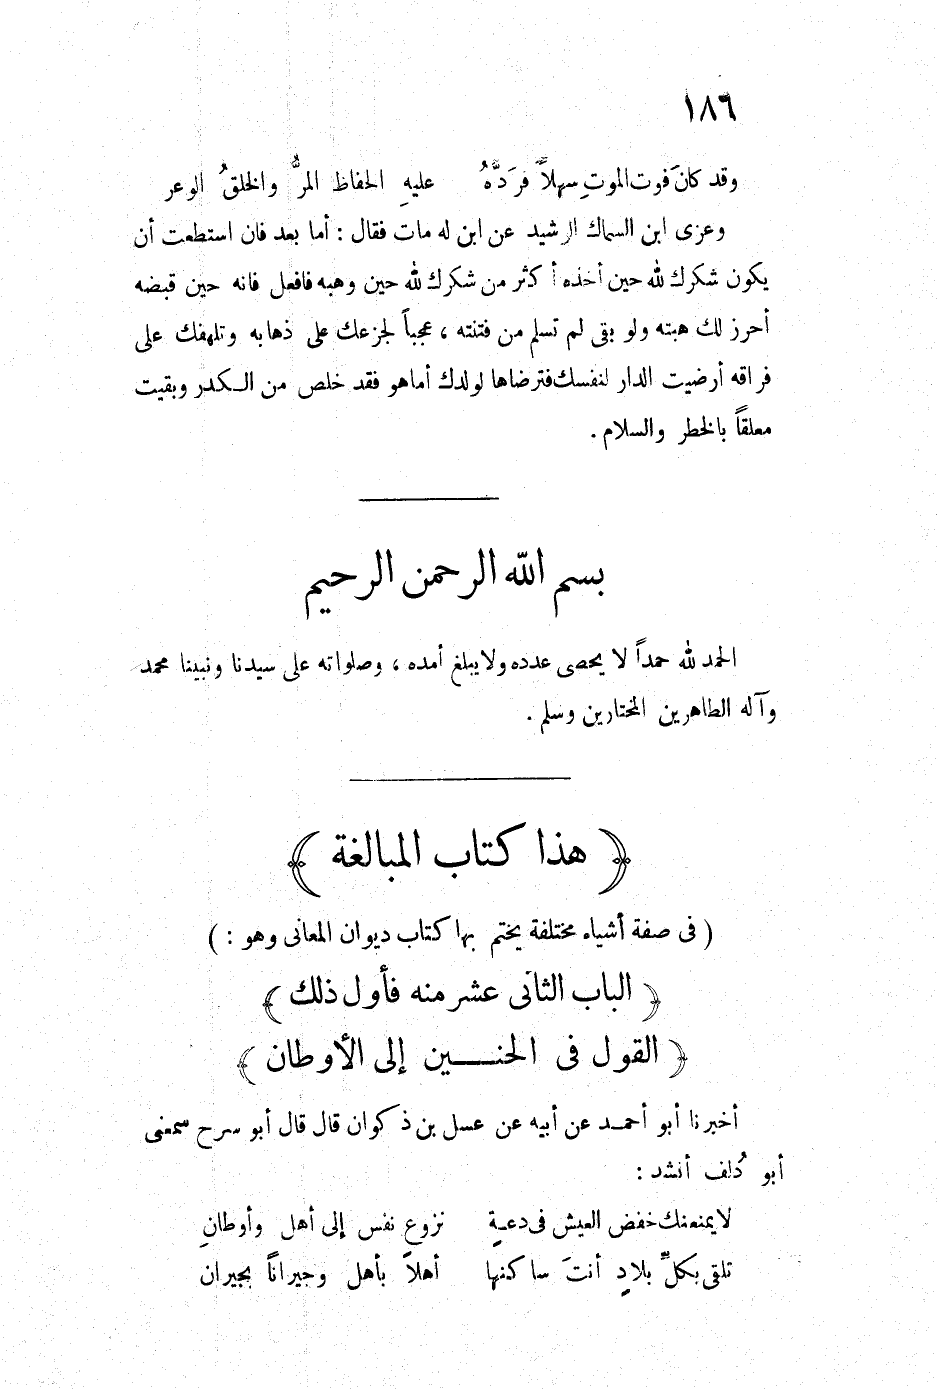 ١٨٦
وقد كانَ فوت الموتِ سهلاً فرَدَّهُ عليهِ الحفاظ المرُّ والخلقُ الوعر
وعزى ابن السماك الرشيد عن ابن له مات فقال : أما بعد فان استطعت أن
يكون شكرك لله حين أخذه أكثر من شكرك لله حين وهبه فافعل فانه حين قبضه
أحرز لك هبته ولو بقى لم تسلم من فتنته ، عجباً لجزعك على ذهابه وتلهفك على
فراقه أرضيت الدار لنفسك فترضاها لولدك أما هو فقد خلص من الكدر وبقيت
معلقاً بالخطر والسلام .
بسم الله الرحمن الرحيم
الحمد لله حمداً لا يحصى عدده ولا يبلغ أمده ، وصلواته على سيدنا ونبينا محمد
وآله الطاهرين المختارين وسلم .
﴿ هذا كتاب المبالغة ﴾
( فى صفة أشياء مختلفة يختم بها كتاب ديوان المعانى وهو : )
﴿ الباب الثانى عشر منه فأول ذلك ﴾
﴿ القول فى الحنــــين إلى الأوطان ﴾
أخبرنا أبو أحمـد عن أبيه عن عسل بن ذكوان قال قال أبو سرح سمعنى
أبو دُلف أنشد :
لا يمنعنك خفض العيش فى دعةٍ نزوع نفس إلى أهل وأوطانِ
تلقى بكلِّ بلادٍ أنتَ ساكنها أهلاً بأهل وجيراناً بجيران